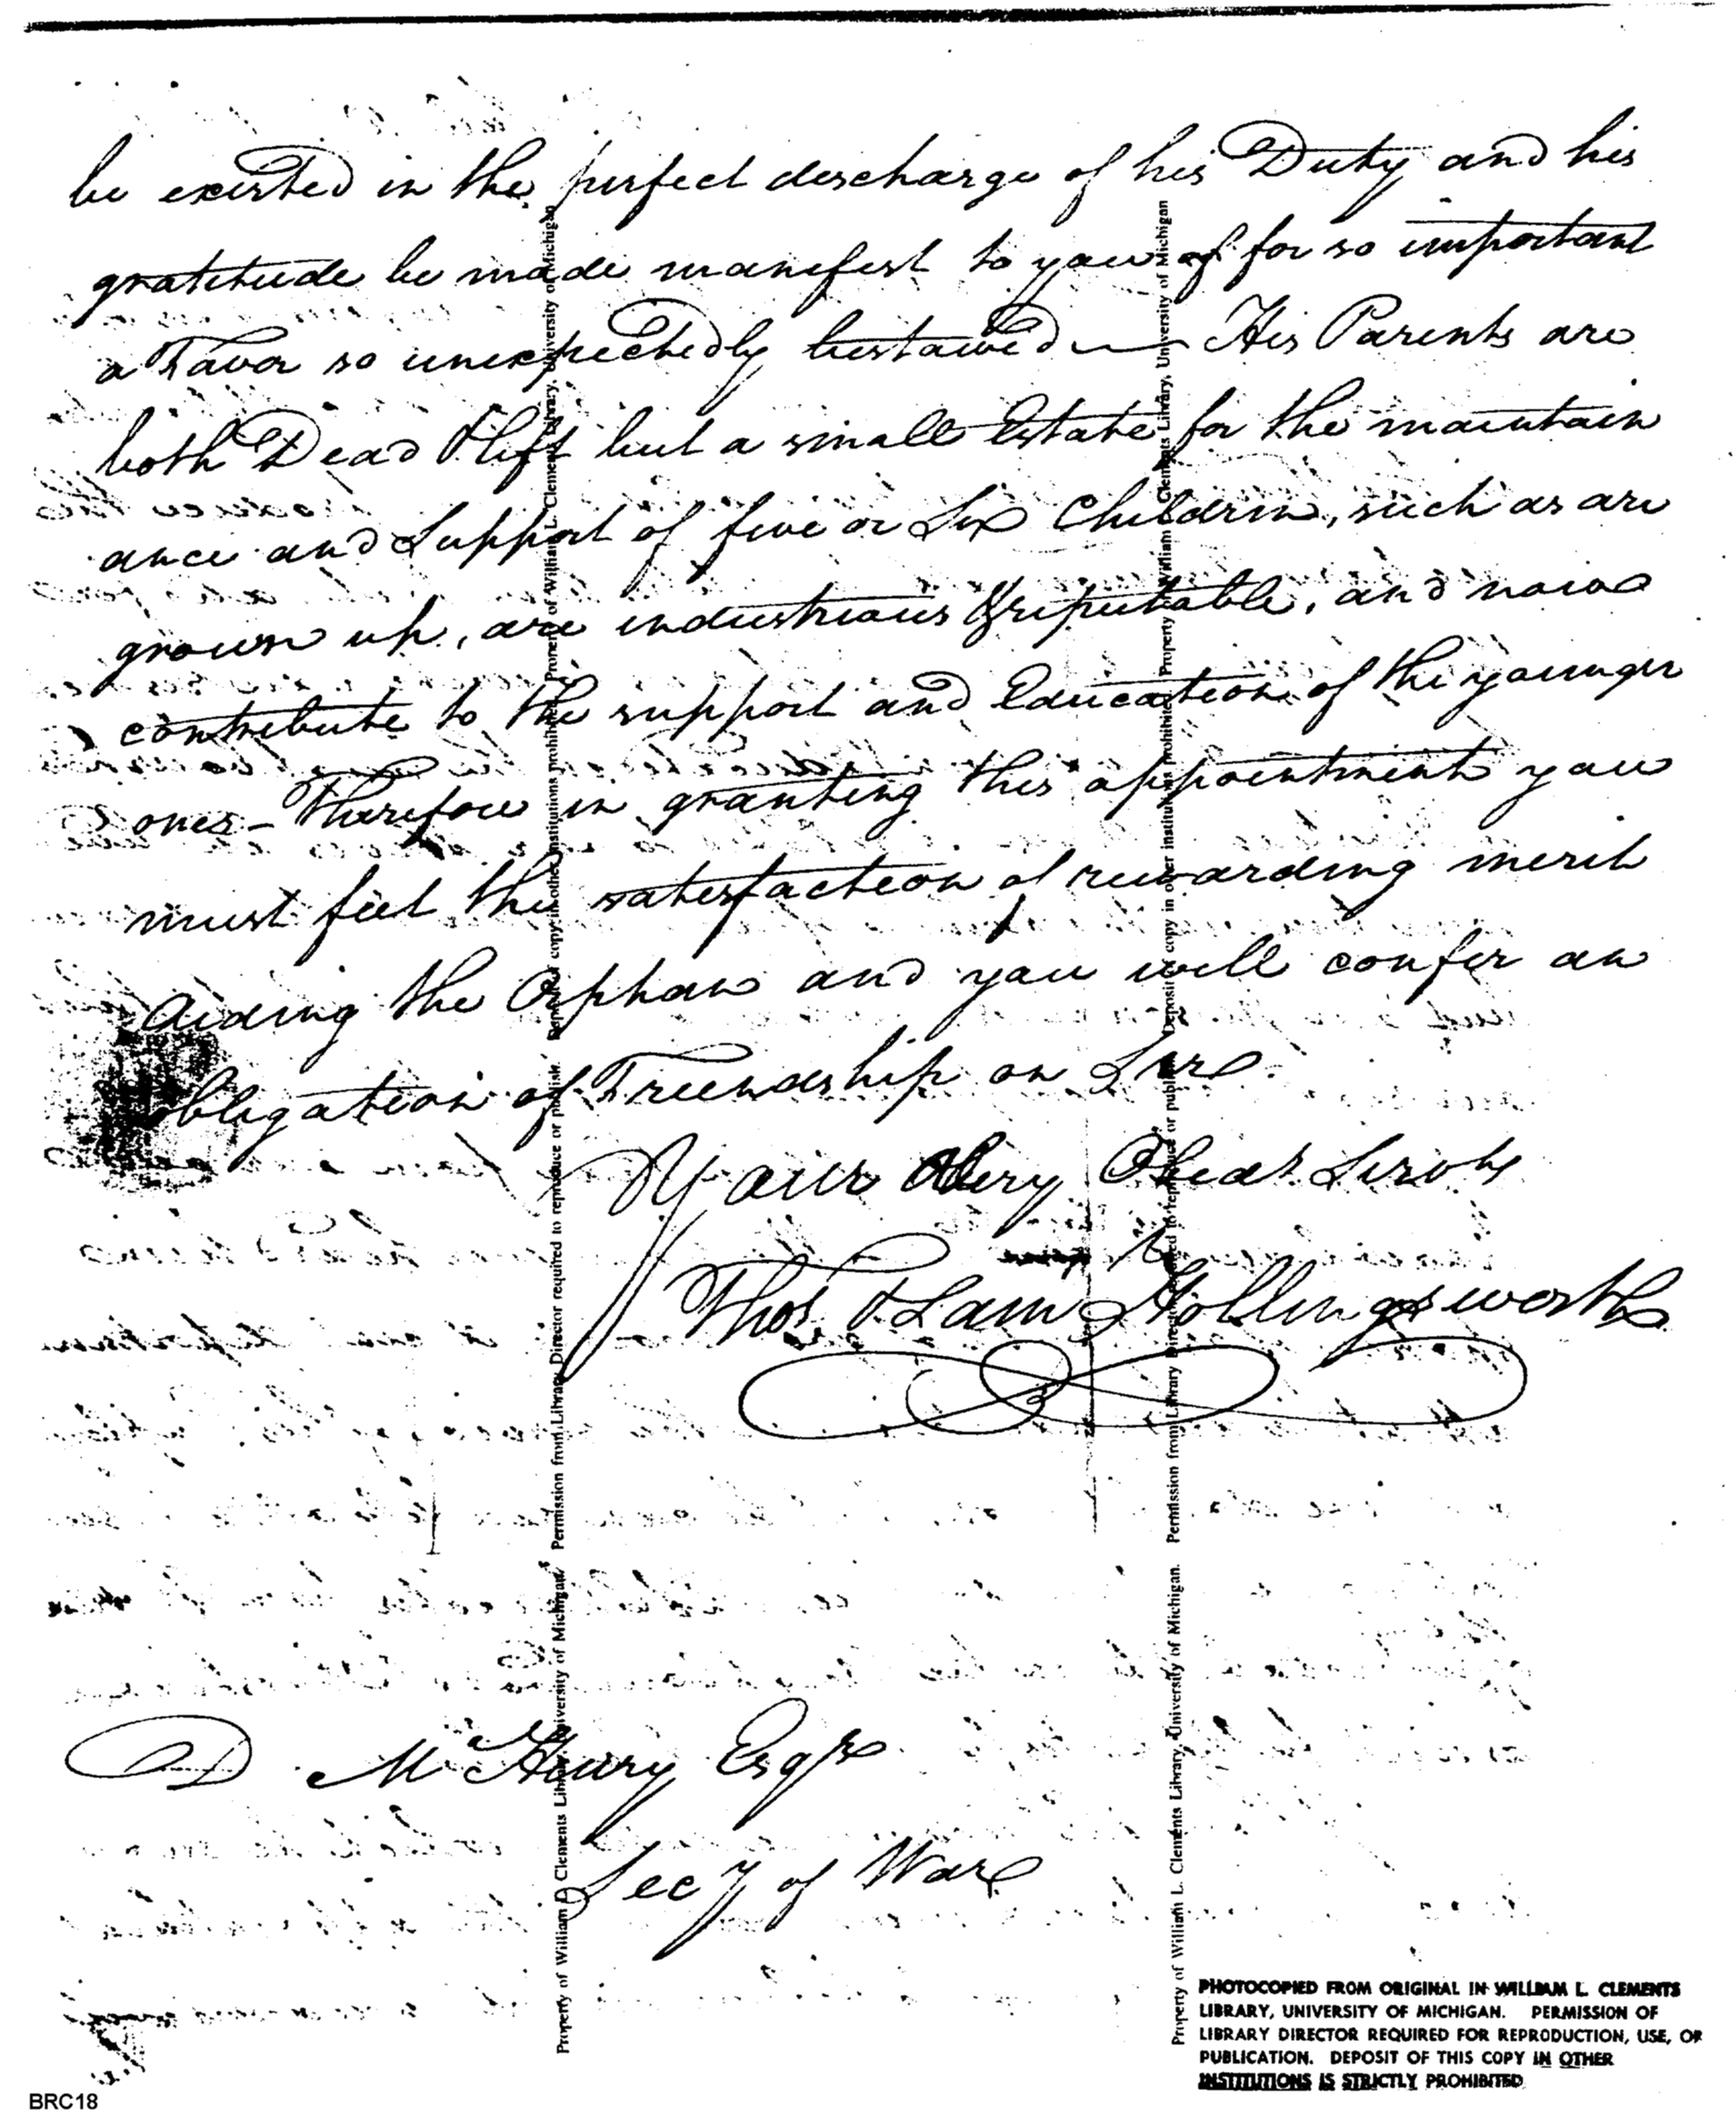 be exerted in the perfect discharge of his Duty and his
gratitude be made manifest to you of for so important
a Favor so unexpectedly bestowed — His Parents are
both Dead & left but a small Estate for the maintain
ance and Support of five or Six Children, such as are
grown up, are industrious & reputable, and now
contribute to the support and Education of the younger
ones – Therefore in granting this appointment you
must feel the satisfaction of rewarding merit
aiding the Orphan and you will confer an
obligation of Friendship on Sir
Your Very Obedt. Servts
Thos. & Sam Hollingsworth
McHenry Esqr
Secy of War
Property of William L. Clements Library, University of Michigan. Permission from Library Director required to reproduce or publish. Deposit of copy in other institutions prohibited. Property of William L. Clements Library, University of Michigan
Property of William L. Clements Library, University of Michigan. Permission from Library Director required to reproduce or publish. Deposit of copy in other institutions prohibited. Property of William L. Clements Library, University of Michigan
PHOTOCOPIED FROM ORIGINAL IN WILLIAM L. CLEMENTS
LIBRARY, UNIVERSITY OF MICHIGAN. PERMISSION OF
LIBRARY DIRECTOR REQUIRED FOR REPRODUCTION, USE, OR
PUBLICATION. DEPOSIT OF THIS COPY IN OTHER
INSTITUTIONS IS STRICTLY PROHIBITED
BRC18